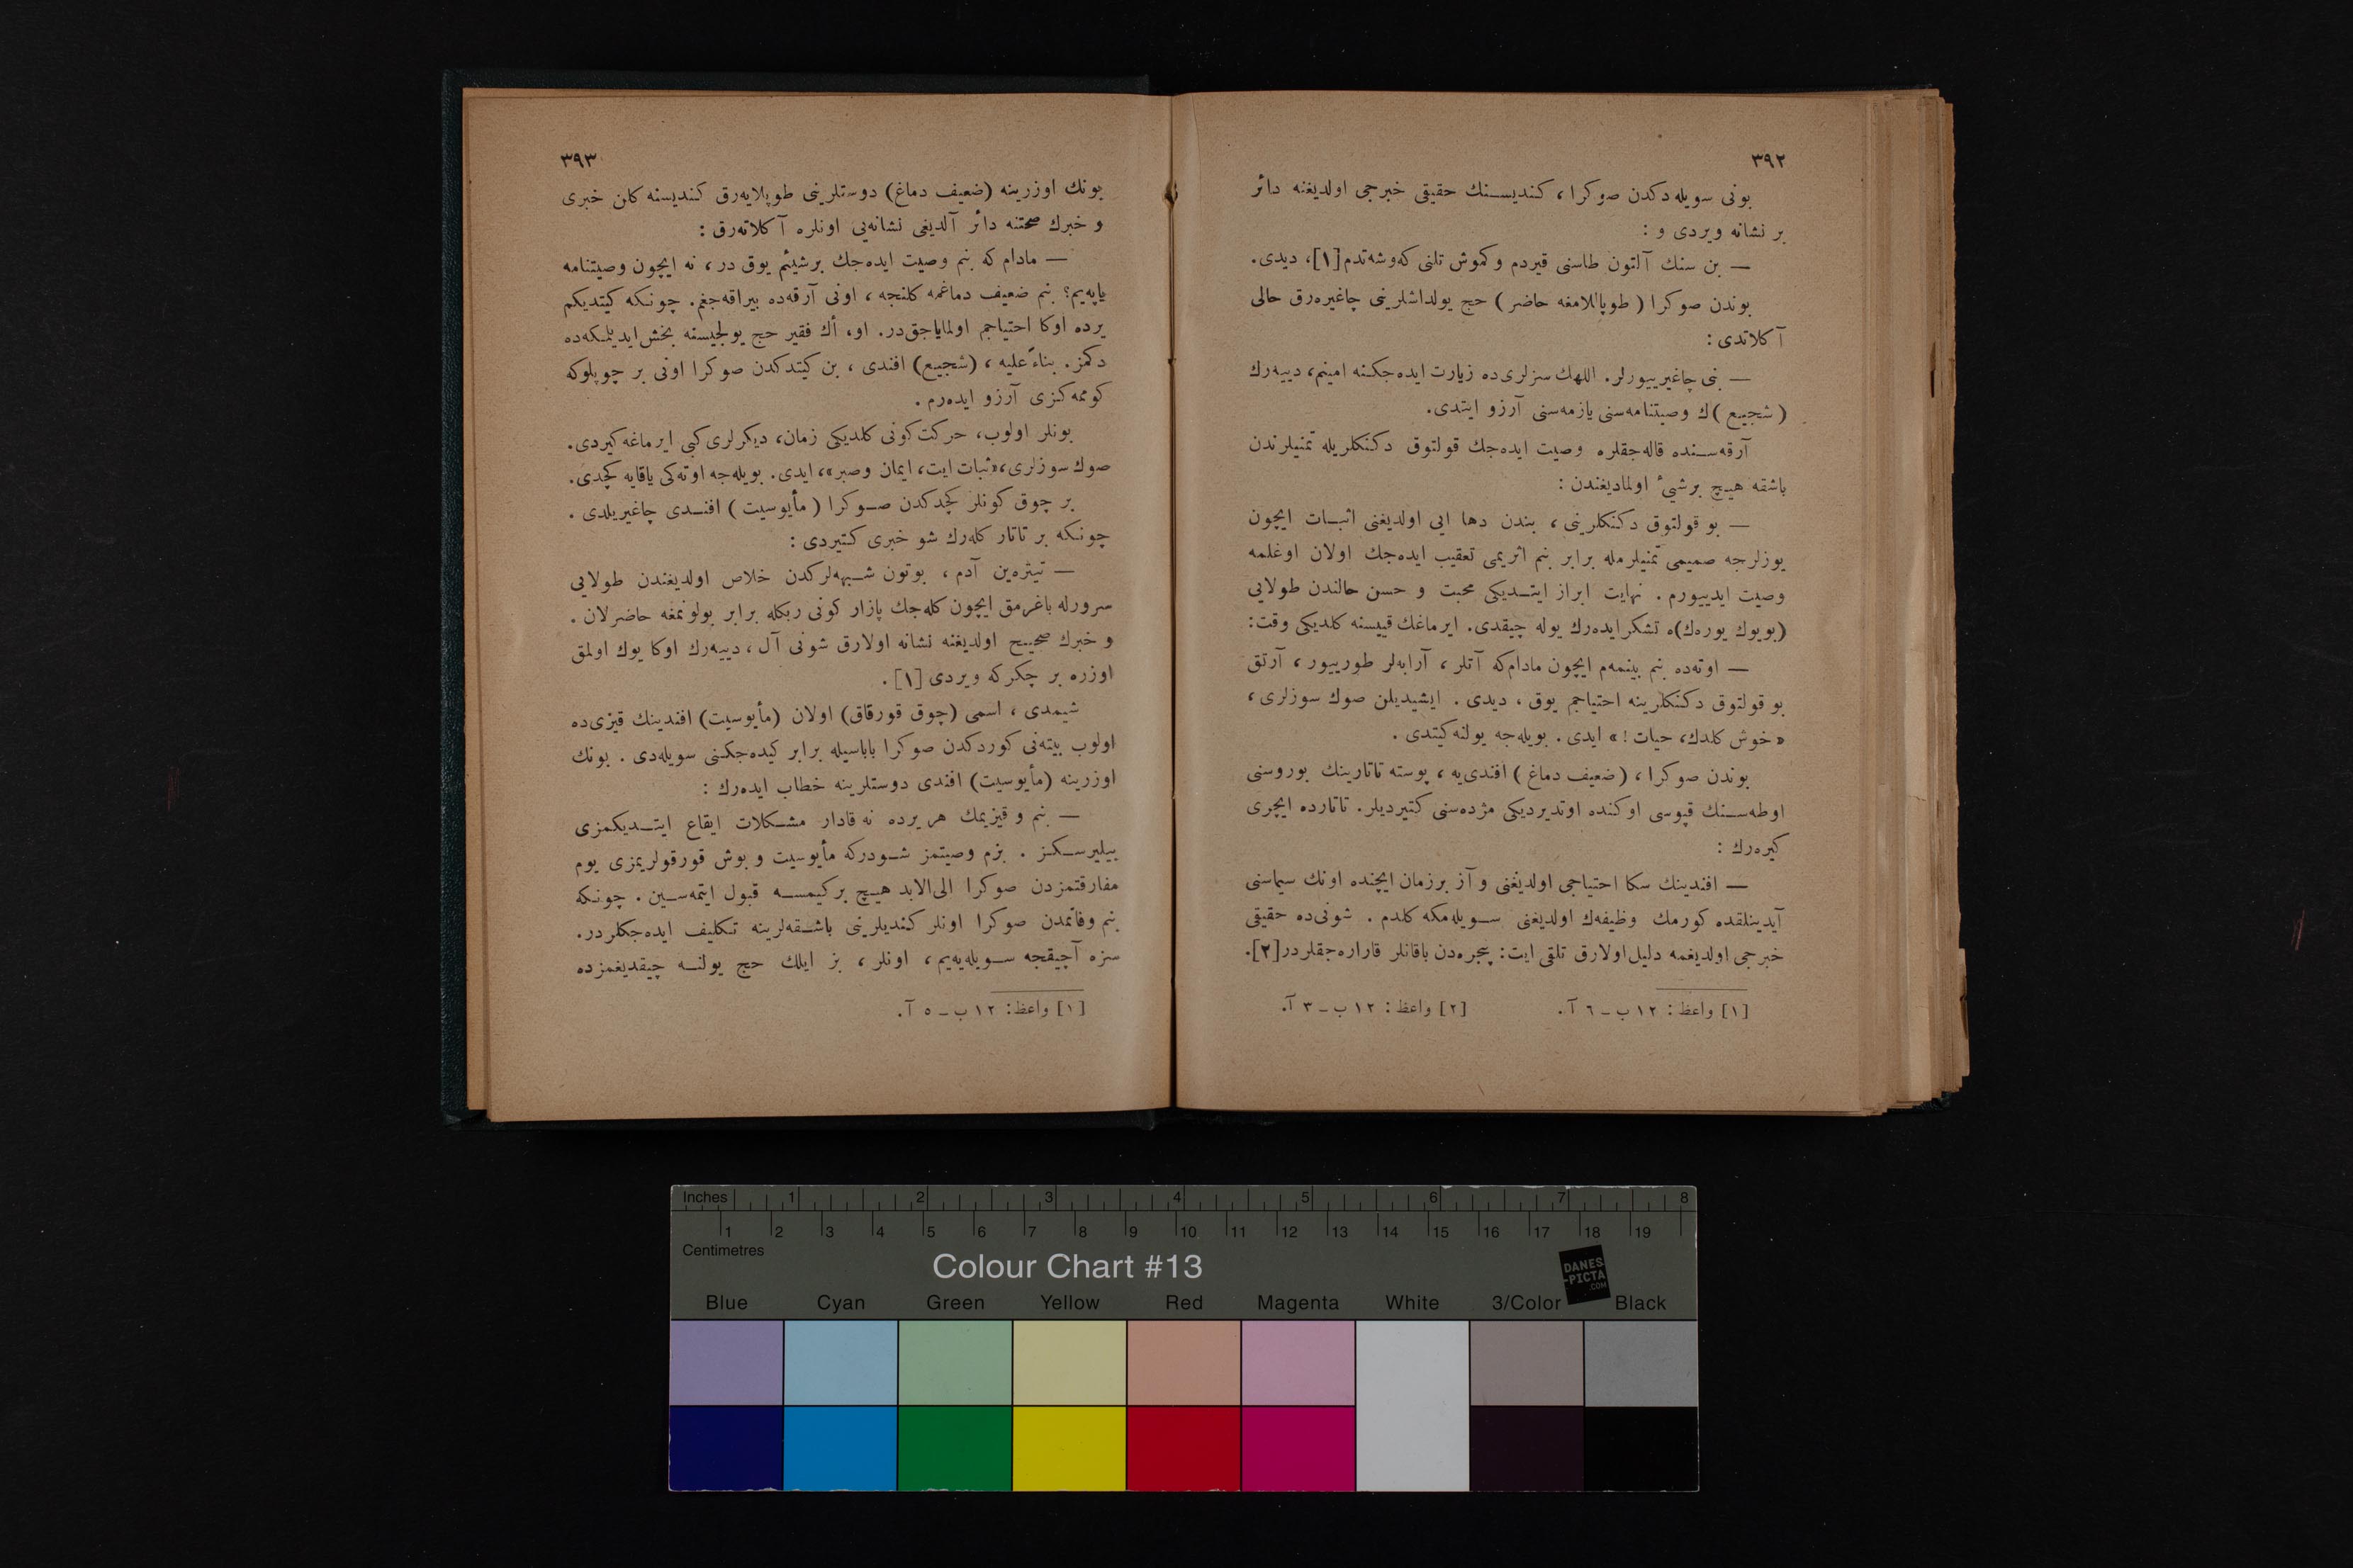 ٣٩٢
بونی سویله‌دکدن صوکرا، کندیسنك حقیقی خبرجی اولدیغنه دائر
بر نشانه ویردی و :
— بن سنك آلتون طاسنی قیردم وکموش تلنی که‌وشه‌تدم[١]، دیدی.
بوندن صوکرا ( طوپاللامغه حاضر ) حج یولداشلرینی چاغیره‌رق حالی
آکلاتدی :
— بنی چاغیرییورلر. اللهك سزلری‌ده زیارت ایده‌جکنه امینم، دییه‌رك
( شجیع )ك وصیتنامه‌سنی یازمه‌سنی آرزو ایتدی.
آرقه‌سنده قاله‌جقلره وصیت ایده‌جك قولتوق دکنکلریله تمنیلرندن
باشقه هیچ برشیٴ اولمادیغندن :
— بو قولتوق دکنکلرینی، بندن دها ایی اولدیغنی اثبات ایچون
یوزلرجه صمیمی تمنیلرمله برابر بنم اثریمی تعقیب ایده‌جك اولان اوغلمه
وصیت ایدییورم . نهایت ابراز ایتدیکی محبت و حسن حالندن طولایی
(بویوك یوره‌ك)ه تشکرایده‌رك یوله چیقدی. ایرماغك قییسنه کلدیکی وقت:
— اوته‌ده بنم بینمه‌م ایچون مادام‌که آتلر، آرابه‌لر طورییور، آرتق
بو قولتوق دکنکلرینه احتیاجم یوق ، دیدی . ایشیدیلن صوك سوزلری،
« خوش کلدك، حیات ! » ایدی . بویله‌جه یولنه کیتدی .
بوندن صوکرا، (ضعیف دماغ) افندی‌یه، پوسته تاتارینك بوروسنی
اوطه‌سنك قپوسی اوکنده اوتدیردیکی مژده‌سنی کتیردیلر. تاتارده ایچری
کیره‌رك :
— افندینك سکا احتیاجی اولدیغنی و آز برزمان ایچنده اونك سیماسنی
آیدینلقده کورمك وظیفه‌ك اولدیغنی سویله‌مکه کلدم . شونی‌ده حقیقی
خبرجی اولدیغمه دلیل اولارق تلقی ایت: پنجره‌دن باقانلر قاراره‌جقلردر[٢].
[١] واعظ : ١٢ ب ـ ٦ آ.    [٢] واعظ : ١٢ ب ـ ٣ آ.
٣٩٣
بونك اوزرینه (ضعیف دماغ) دوستلرینی طوپلایه‌رق کندیسنه کلن خبری
و خبرك صحتنه دائر آلدیغی نشانه‌یی اونلره آکلاته‌رق :
— مادام که بنم وصیت ایده‌جك برشیئم یوق در، نه ایچون وصیتنامه
یاپه‌یم؟ بنم ضعیف دماغمه کلنجه، اونی آرقه‌ده بیراقه‌جغم. چونکه کیتدیکم
یرده اوکا احتیاجم اولمایاجق‌در. او، أك فقیر حج یولجیسنه بخش ایدیلمکه‌ده
دکمز. بناءً علیه، (شجیع) افندی ، بن کیتدکدن صوکرا اونی بر چوپلوکه
کوممه‌کزی آرزو ایده‌رم .
بونلر اولوب، حرکت کونی کلدیکی زمان، دیکرلری کبی ایرماغه کیردی.
صوك سوزلری، «ثبات ایت، ایمان وصبر»، ایدی. بویله‌جه اوته‌کی یاقایه کچدی.
بر چوق کونلر کچدکدن صوکرا (مأیوسیت) افندی چاغیریلدی .
چونکه بر تاتار کله‌رك شو خبری کتیردی :
— تیتره‌ین آدم، بوتون شبهه‌لرکدن خلاص اولدیغندن طولایی
سرورله باغرمق ایچون کله‌جك پازار کونی ربکله برابر بولونمغه حاضرلان .
و خبرك صحیح اولدیغنه نشانه اولارق شونی آل، دییه‌رك اوکا یوك اولمق
اوزره بر چکرکه ویردی [١] .
شیمدی ، اسمی (چوق قورقاق) اولان (مأیوسیت) افندینك قیزی‌ده
اولوب بیته‌نی کوردکدن صوکرا باباسیله برابر کیده‌جکنی سویله‌دی . بونك
اوزرینه (مأیوسیت) افندی دوستلرینه خطاب ایده‌رك :
— بنم و قیزیمك هر یرده نه قادار مشکلات ایقاع ایتدیکمزی
بیلیرسکز . بزم وصیتمز شودرکه مأیوسیت و بوش قورقولریمزی یوم
مفارقتمزدن صوکرا الی‌الابد هیچ برکیمسه قبول ایتمه‌سین . چونکه
بنم وفاتمدن صوکرا اونلر کندیلرینی باشقه‌لرینه تکلیف ایده‌جکلردر.
سزه آچیقجه سویله‌یه‌یم، اونلر، بز ایلك حج یولنه چیقدیغمزده
[١] واعظ : ١٢ ب ـ ٥ آ.
Inches 1 2 3 4 5 6 7 8
1 2 3 4 5 6 7 8 9 10 11 12 13 14 15 16 17 18 19
Centimetres
Colour Chart #13
DANES
-PICTA
.COM
Blue Cyan Green Yellow Red Magenta White 3/Color Black